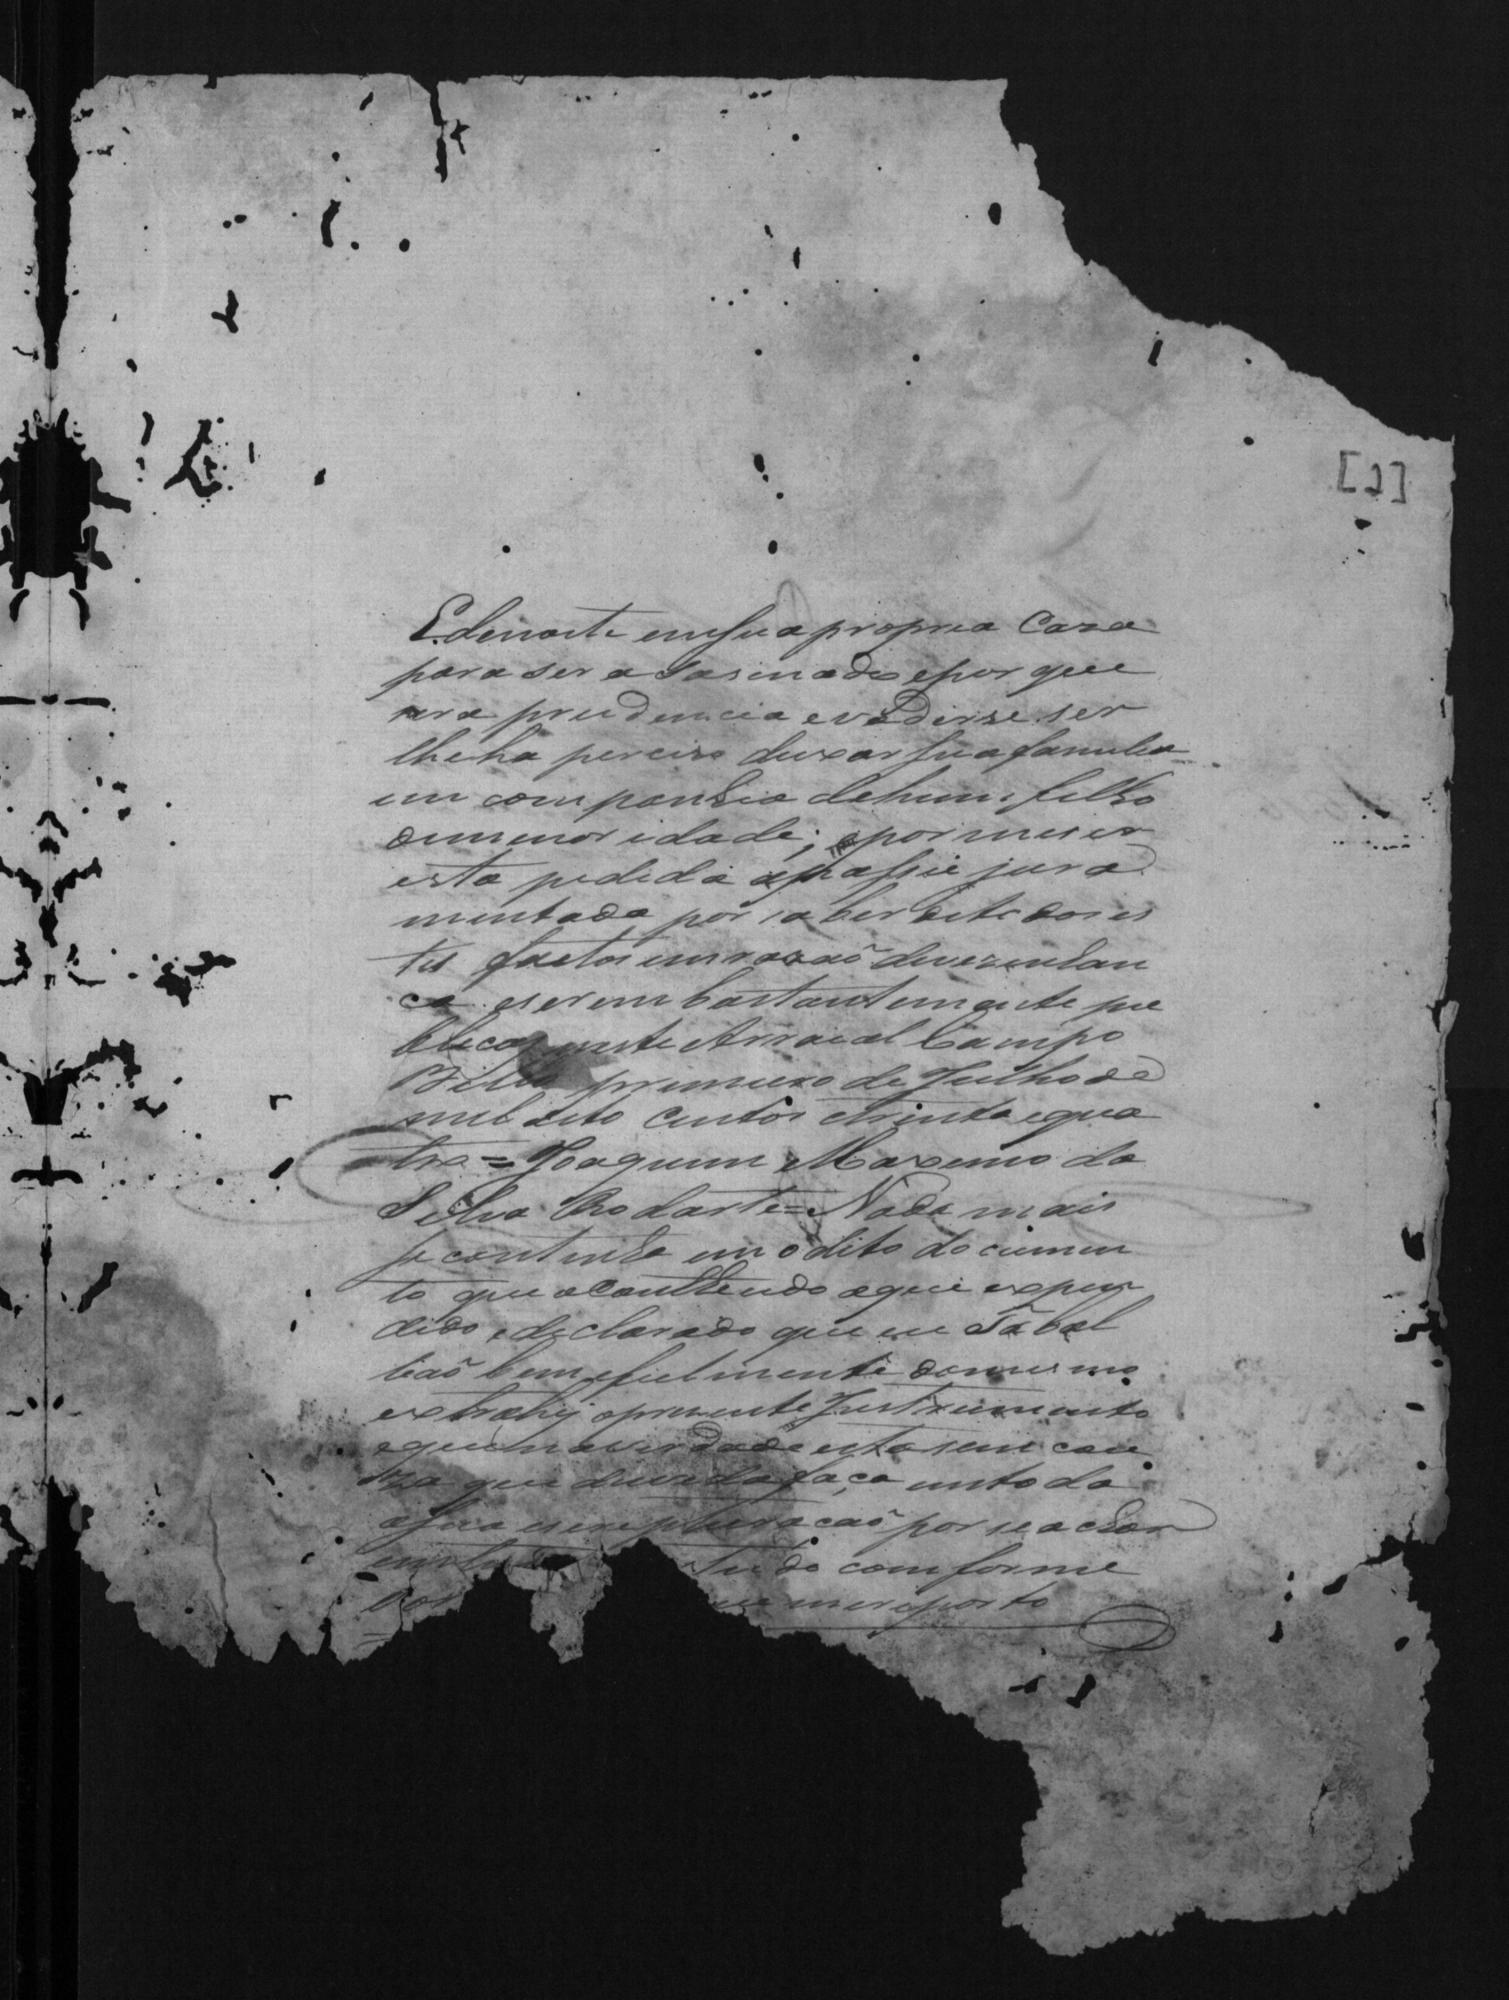 [2]
E denoite em sua propria Caza
para ser asasinado e por que
era prudencia evadirse ser
lhe ha perciso deixar sua familia
em companhia de hum filho
demenor idade; e por me ser
esta pedida a passie jura
mentada por saber dito dos es
tes factos em razaõ de vezenhan
ça e serem bastantemente pu
blicos neste Arraial Campo
Bello primeiro de Julho de
mil oito centos etrinta e qua
tro = Joaquim Maximo da
Silva Rodarte = Nada mais
se continha em o dito documen
to que o Conthendo aqui expen
dido, e declarado que eu Tabal
liaõ bem efielmente domesmo
extrahy opresente Instrumento
e que na verdade esta sem cou
za que duvida faça em toda
a sua escripturacaõ por se achar
em tudo conforme
me reporto